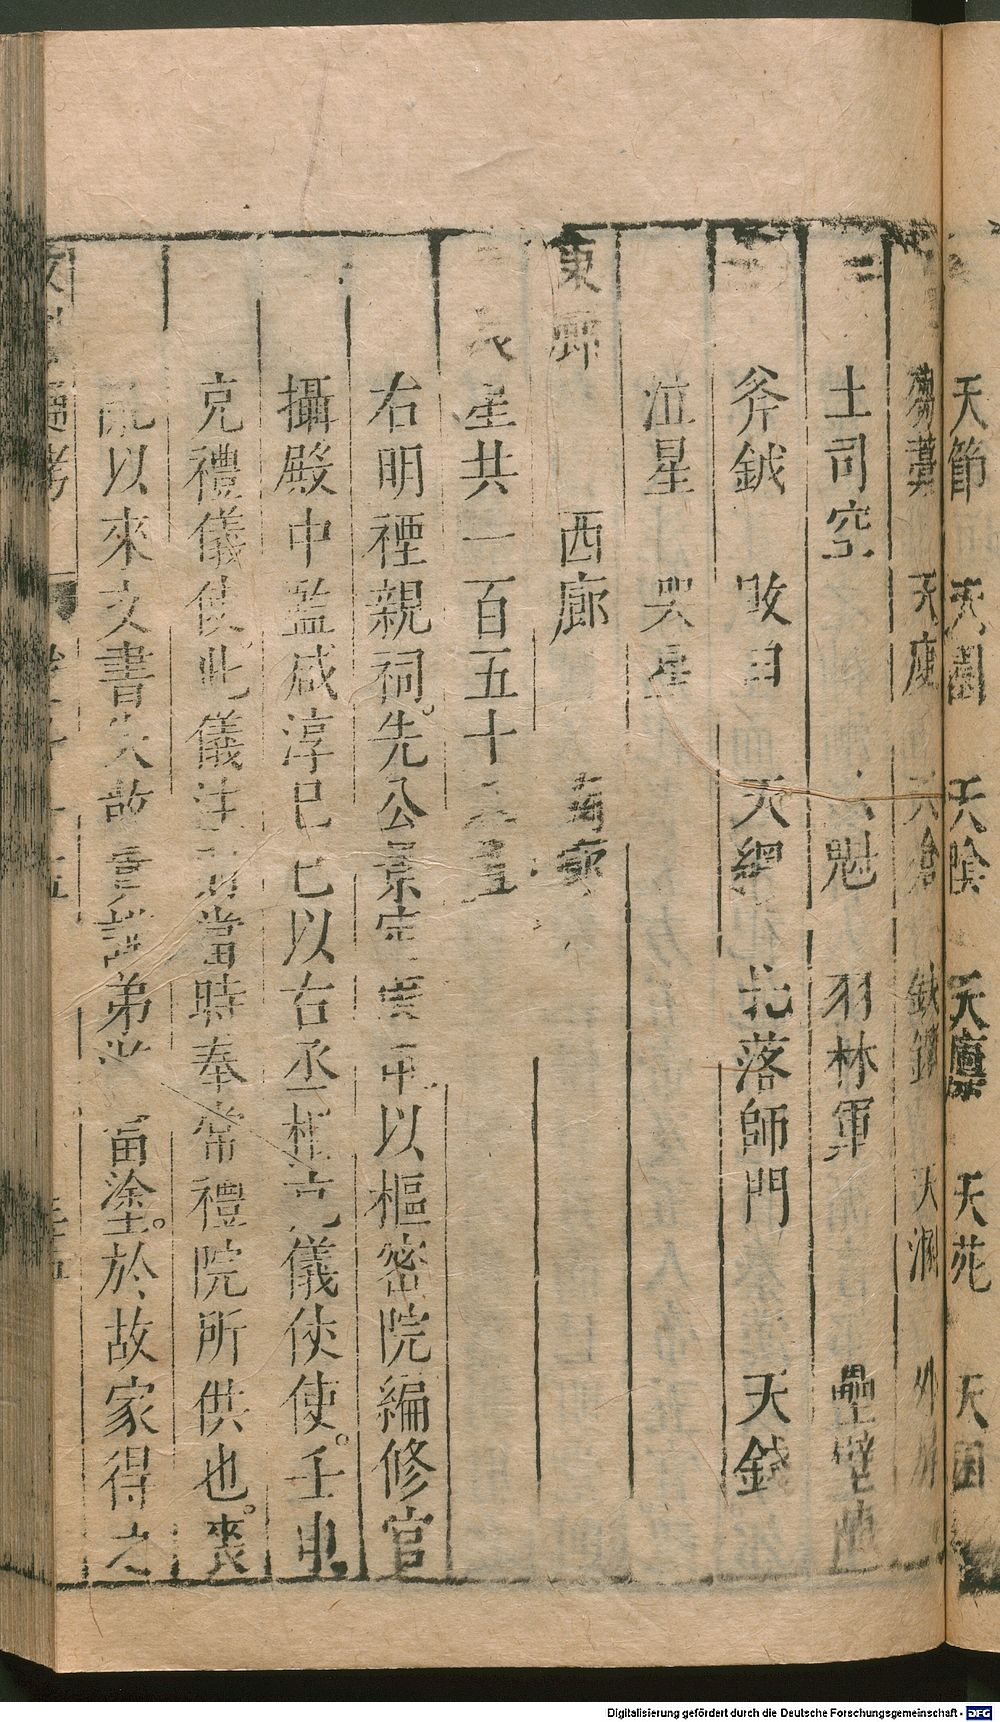 天節 天園 天陰 天廩 天苑 天囷
芻藁 天庾 天倉 鈇鑕 天溷 外屏
土司空 八魁 羽林軍 壘壁陣
斧鉞 敗臼 天綱 北落師門 天錢
泣星 哭星
東廊 西廊 南廊
星共一百五十
右明禋親祠。先公景定 以樞密院編修官
攝殿中監咸淳已巳以右丞相充儀使使。壬申
克禮儀使此儀注 當時奉常禮院所供也。喪
亂以來文書失散 弟 塗。於故家得之
文獻通考
Digitalisierung gefördert durch die Deutsche Forschungsgemeinschaft - DFG